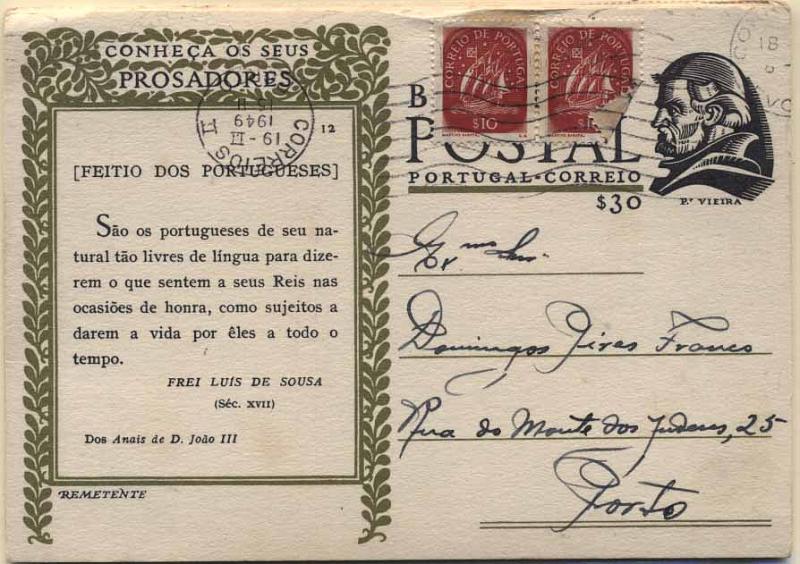 CONHEÇA OS SEUS
PROSADORES
12
[FEITIO DOS PORTUGUESES]
São os portugueses de seu na-
tural tão livres de língua para dize-
rem o que sentem a seus Reis nas
ocasiões de honra, como sujeitos a
darem a vida por êles a todo o
tempo.
FREI LUÍS DE SOUSA
(Séc. XVII)
Dos Anais de D. João III
REMETENTE
CORREIOS
19-II
1949
CORREIO DE PORTUGAL
$10
CORREIO DE PORTUGAL
B
POSTAL
PORTUGAL-CORREIO
$30
P.e VIEIRA
18
Exmo Snr.
Domingos Pires Franco
Rua do Monte dos Judeus, 25
Porto